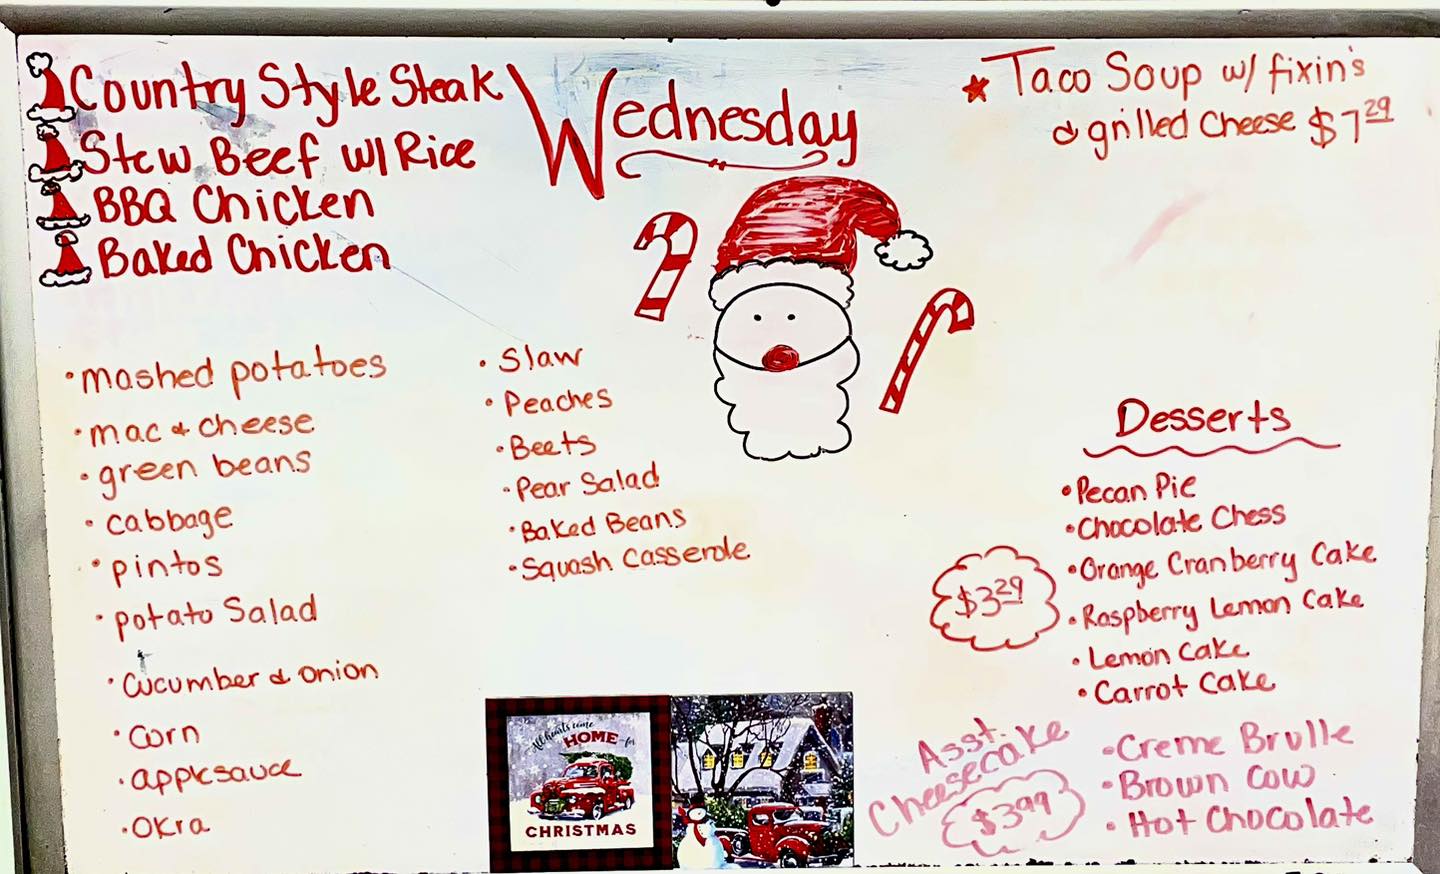 Country Style Steak
Stew Beef w/ Rice
BBQ Chicken
Baked Chicken
Wednesday
Taco Soup w/ fixin's
& grilled cheese $7.29
• mashed potatoes
• mac & cheese
• green beans
• cabbage
• pintos
• potato Salad
• Cucumber & onion
• Corn
• applesauce
• Okra
• Slaw
• Peaches
• Beets
• Pear Salad
• Baked Beans
• Squash Casserole
Desserts
• Pecan Pie
• Chocolate Chess
• Orange Cranberry Cake
• Raspberry Lemon Cake
• Lemon Cake
• Carrot Cake
$3.29
Asst.
Cheesecake
$3.99
• Creme Brulle
• Brown Cow
• Hot Chocolate
All hearts come
HOME for
CHRISTMAS